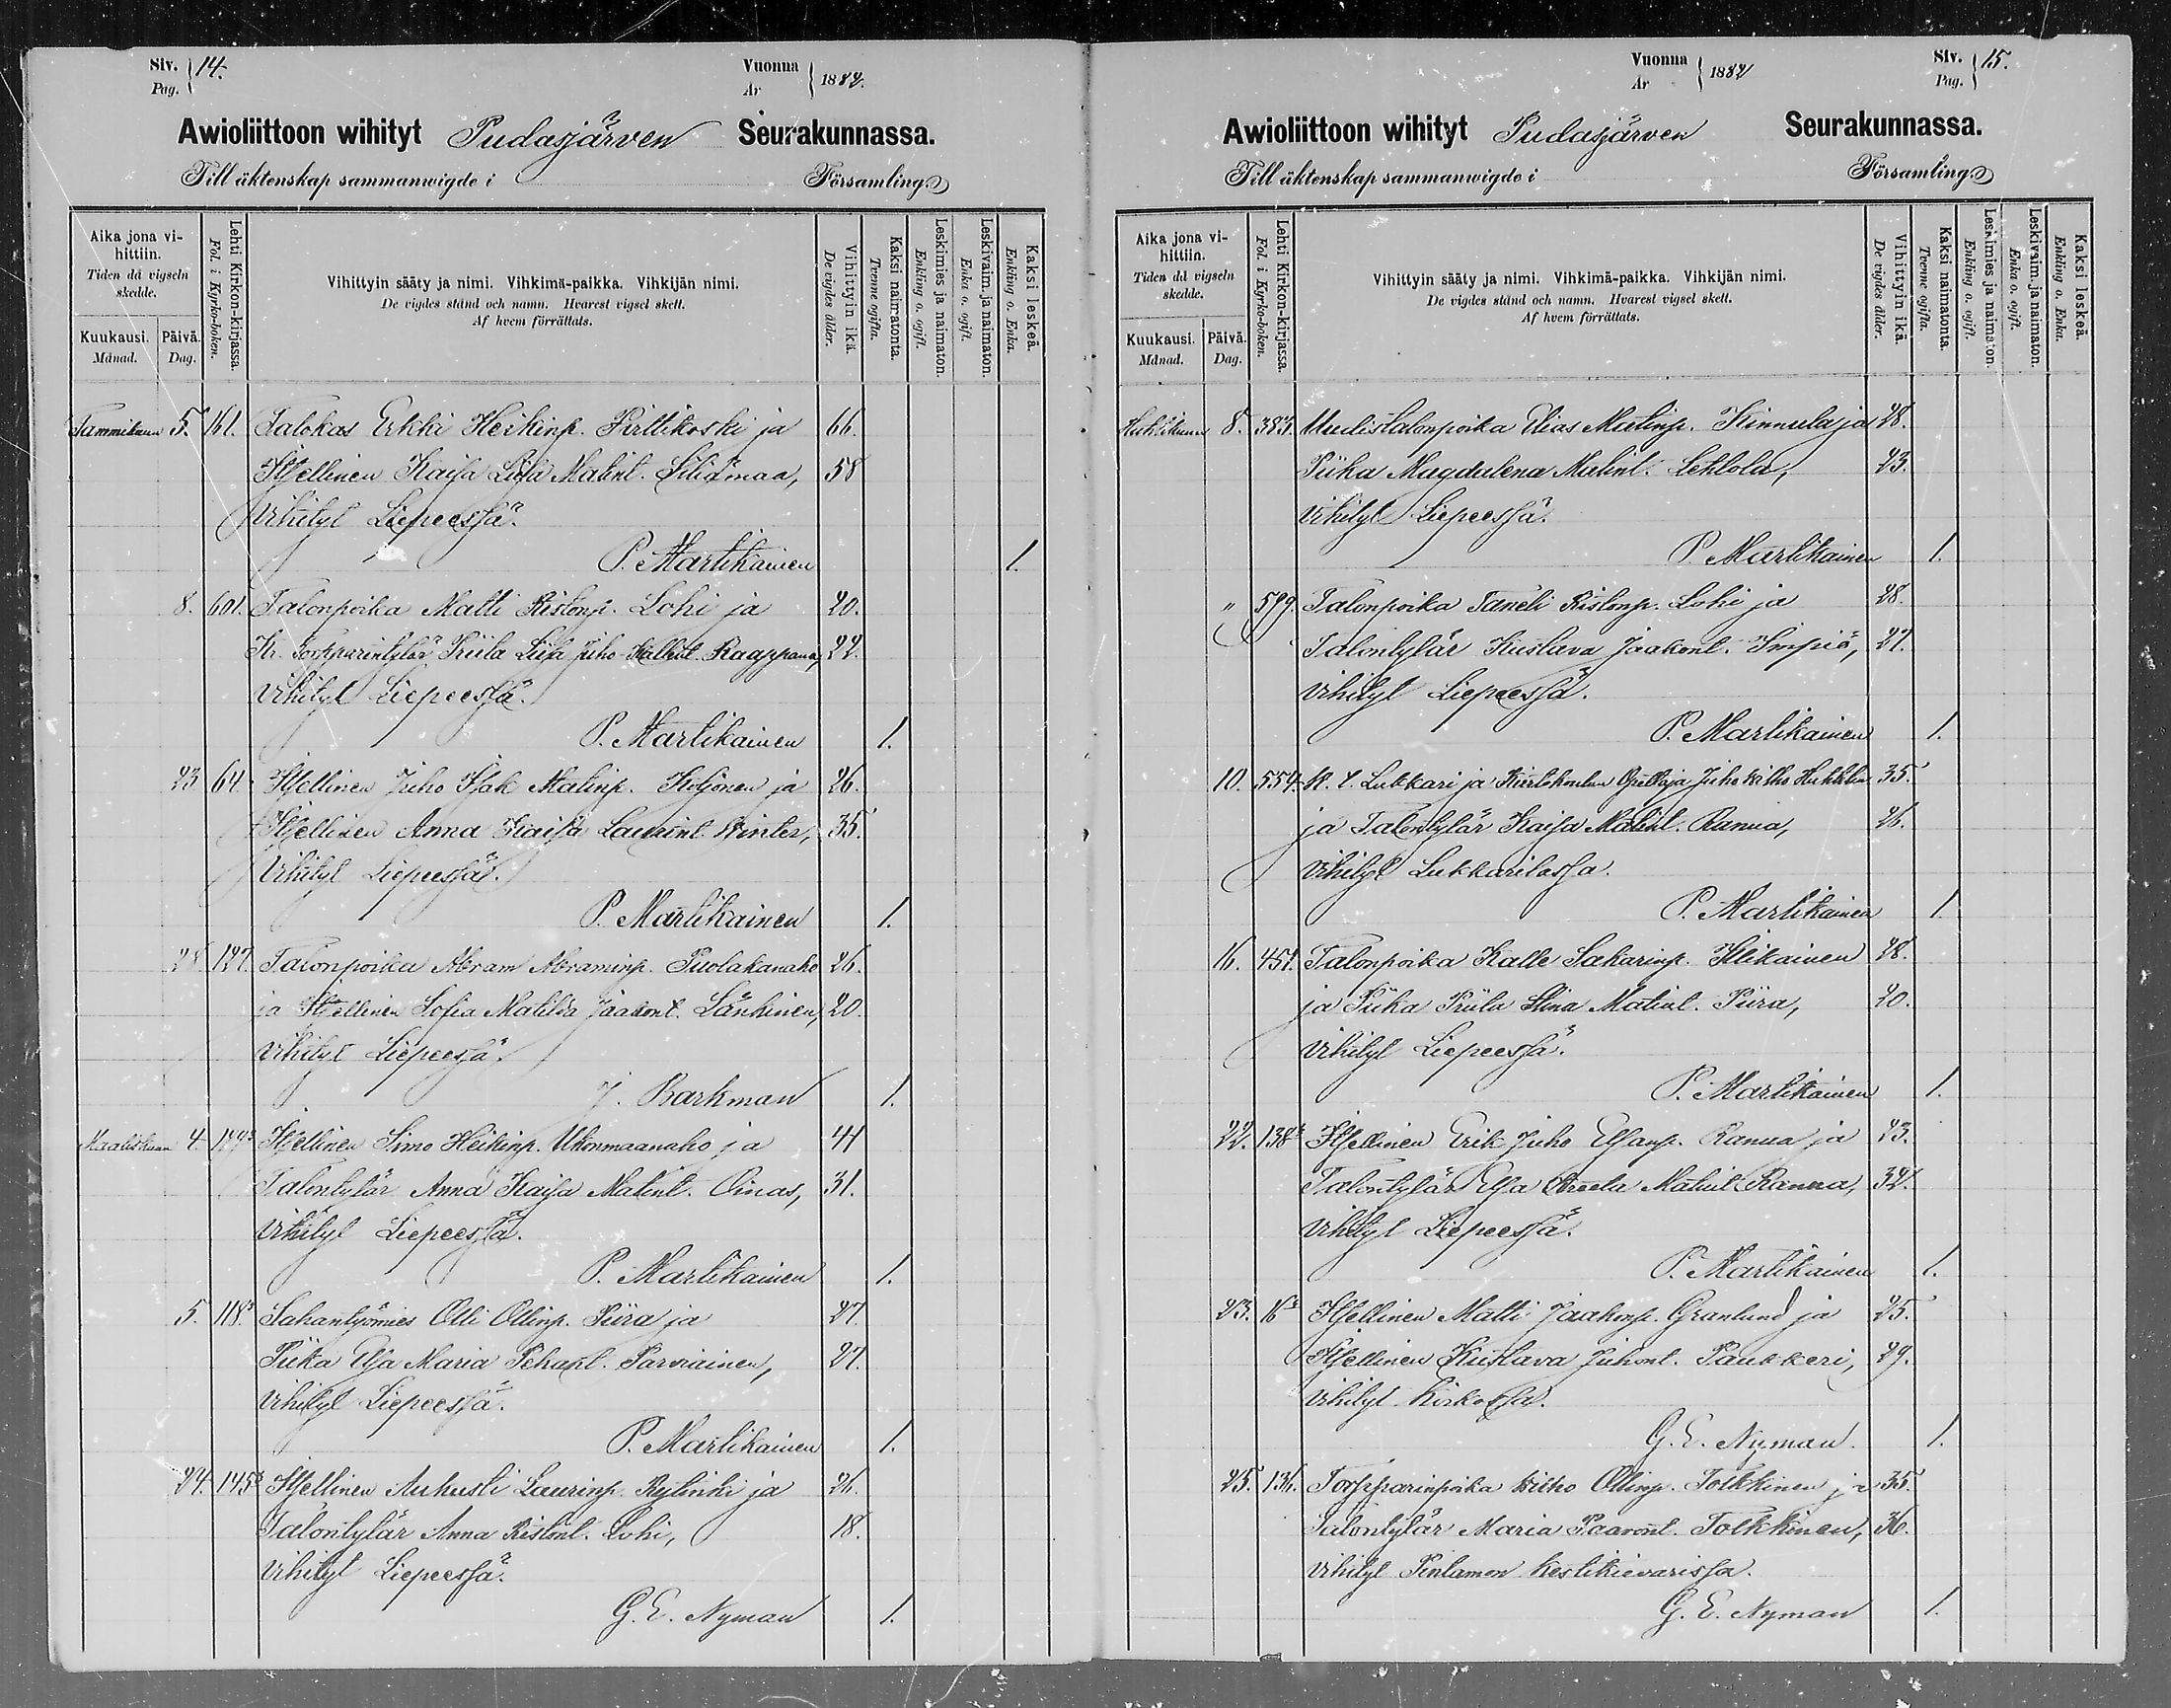 Siv. 14.
Pag.
Vuonna 1882.
År
Awioliittoon wihityt Pudasjärven Seurakunnassa.
Till äktenskap sammanwigde i Församling
Aika jona vihittiin.
Tiden då vigseln skedde.
Kuukausi. Månad.
Päivä. Dag.
Lehti Kirkon-kirjassa.
Fol. i Kyrko-boken.
Vihittyin sääty ja nimi. Vihkimä-paikka. Vihkijän nimi.
De vigdes stånd och namn. Hvarest vigsel skett.
Af hvem förrättats.
Vihittyin ikä.
De vigdes ålder.
Kaksi naimatonta.
Tvenne ogifta.
Leskimies ja naimaton.
Enkling o. ogift.
Leskivaim. ja naimaton.
Enka o. ogift.
Kaksi leskeä.
Enkling o. Enka.
Tammikuun 5. 161. Talokas Erkki Heikinp. Pirttikoski ja 66.
Itsellinen Kaisa Liisa Matint. 58
Vihityt Liepeessä.
P. Martikainen 1.
8. 601. Talonpoika Matti Ristonp. Lohi ja 20.
Kr. Torpparintytär Priita Liisa Juho Kallent. Raappana, 22.
Vihityt Liepeessä.
P. Martikainen 1.
23 64. Itsellinen Juho Isak Matinp. Koljonen ja 26.
Itsellinen Anna Kaisa Laurint. Winter, 35.
Vihityt Liepeessä.
P. Martikainen 1.
127. Talonpoika Abram Abraminp. Puolakanaho 26.
ja Itsellinen Sofia Matilda Jaakont. Länkinen, 20.
Vihityt Liepeessä.
J. Barkman 1.
Maaliskuun 4. Itsellinen Simo Heikinp. Ukonmaanaho ja 41
Talontytär Anna Kaisa Matint. Oinas, 31.
Vihityt Liepeessä.
P. Martikainen 1.
5. 118. Sahantyömies Olli Ollinp. Piira ja 27.
Piika Elsa Maria Pekant. Parviainen, 27.
Vihityt Liepeessä.
P. Martikainen 1.
24. 145 Itsellinen Auhusti Laurinp. Rytinki ja 26.
Talontytär Anna Ristont. Lohi, 18.
Vihityt Liepeessä.
G. E. Nyman 1.
Vuonna 1882
År
Siv. 15.
Pag.
Awioliittoon wihityt Pudasjärven Seurakunnassa.
Till äktenskap sammanwigde i Församling
Aika jona vihittiin.
Tiden då vigseln skedde.
Kuukausi. Månad.
Päivä. Dag.
Lehti Kirkon-kirjassa.
Fol. i Kyrko-boken.
Vihittyin sääty ja nimi. Vihkimä-paikka. Vihkijän nimi.
De vigdes stånd och namn. Hvarest vigsel skett.
Af hvem förrättats.
Vihittyin ikä.
De vigdes ålder.
Kaksi naimatonta.
Tvenne ogifta.
Leskimies ja naimaton.
Enkling o. ogift.
Leskivaim. ja naimaton.
Enka o. ogift.
Kaksi leskeä.
Enkling o. Enka.
Huhtikuun 8. 383. Uudistalonpoika Elias Matinp. Kinnula ja 28.
Piika Magdalena Matint. Lehtola, 23.
Vihityt Liepeessä.
P. Martikainen 1.
" 599. Talonpoika Taneli Ristonp. Lohi ja 28.
Talontytär Kustava Jaakont. Impiö, 27.
Vihityt Liepeessä.
P. Martikainen 1.
10. 554. Lukkari ja Kiertokoulun Opettaja Juho Wilho Hukkila 35.
ja Talontytär Kaisa Matint. Ranua, 26.
Vihityt Lukkarilassa.
P. Martikainen 1.
16. 452. Talonpoika Kalle Sakarinp. Illikainen 28.
ja Piika Priita Stina Matint. Piira, 20.
Vihityt Liepeessä.
P. Martikainen 1.
22. 138 Itsellinen Erik Juho Elsanp. Ranua ja 23.
Talontytär Elsa Preeta Matint. Ranua, 32.
Vihityt Liepeessä.
P. Martikainen 1.
23. 16 Itsellinen Matti Jaakonp. Granlund ja 25.
Itsellinen Kustava Juhont. Paukkeri, 29.
Vihityt Kirkossa.
G. E. Nyman. 1.
25. 136. Torpparinpoika Wilho Ollinp. Tolkkinen ja 35.
Talontytär Maria Paavont. Tolkkinen, 36.
Vihityt Pintamon Kestikievarissa.
G. E. Nyman 1.